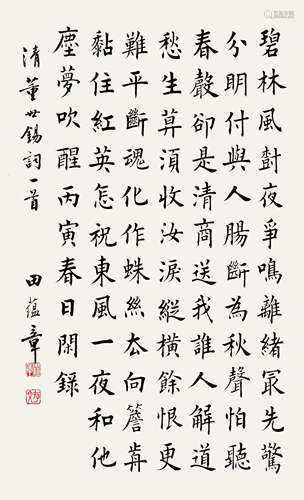 碧林風對夜爭鳴離緒冣先驚
分明付與人腸斷為秋聲怕聽
春聲卻是清商送我誰人解道
愁生須收汝淚縱橫餘恨更
難平斷魂化作蛛絲厺向簷歬
黏住紅英怎祝東風一夜和他
塵夢吹醒丙寅春日閑錄
清董世錫詞一首 田蘊章